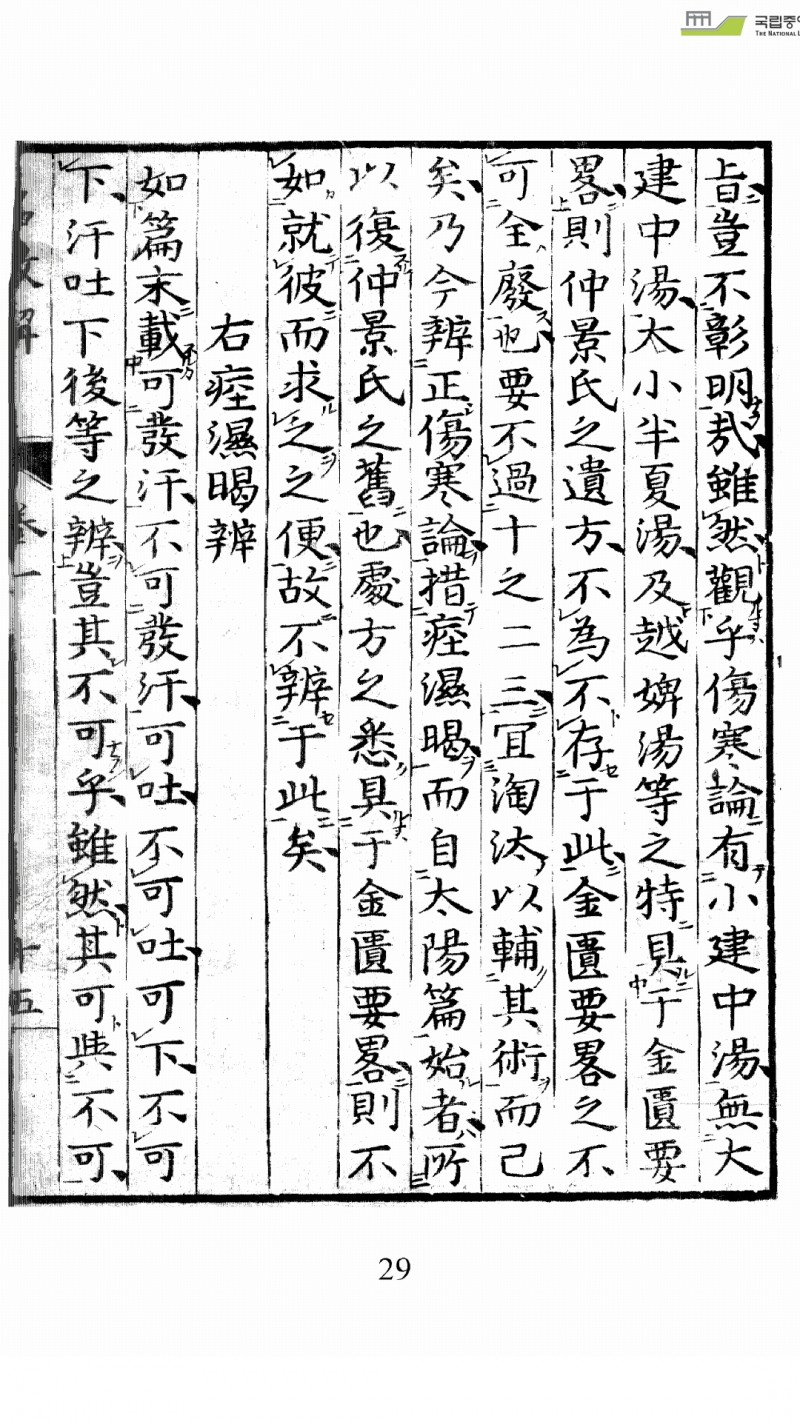 국립중
THE NATIONAL L
旨豈不彰明哉雖然觀乎傷寒論有小建中湯無大
建中湯大小半夏湯及越婢湯等之特見于金匱要
畧則仲景氏之遺方不為不存于此金匱要畧之不
可全廢也要不過十之二三宜淘汰以輔其術而已
矣乃今辨正傷寒論措痙濕暍而自太陽篇始者所
以復仲景氏之舊也處方之悉具于金匱要畧則不
如就彼而求之之便故不辨于此矣
右痙濕暍辨
如篇末載可發汗不可發汗可吐不可吐可下不可
下汗吐下後等之辨豈其不可乎雖然其可與不可
卷一
十五
29